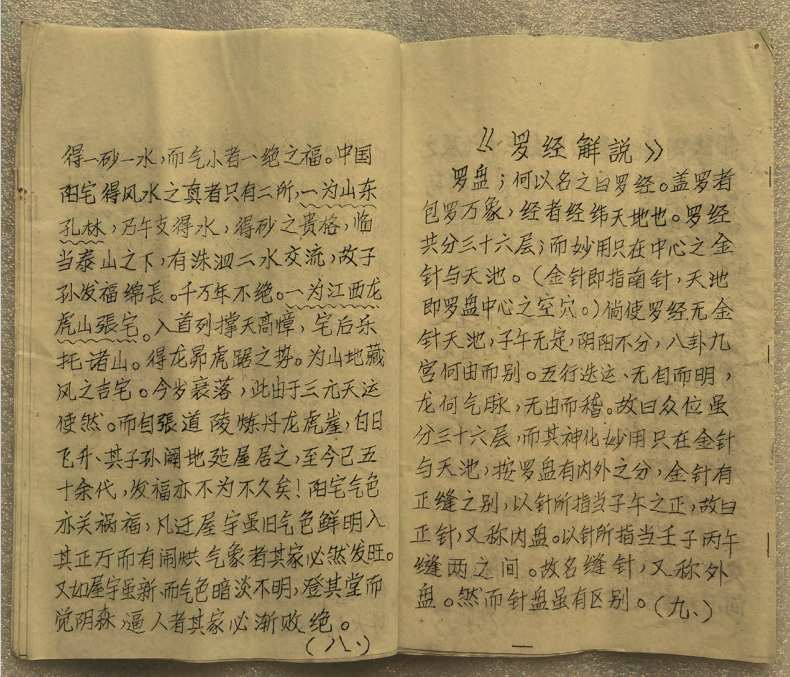 得一砂一水，而气小者一绝之福。中国
阳宅得风水之真者只有二所，一为山东
孔林，乃午支得水，得砂之贵格，临
当泰山之下，有洙泗二水交流，故子
孙发福绵長。千万年不绝。一为江西龙
虎山張宅。入首列撑天高幛，宅后乐
托诸山。得龙昴虎踞之势。为山地藏
风之吉宅。今岁衰落，此由于三元天运
使然。而自張道陵炼丹龙虎崖，白日
飞升、其子孙阐地建屋居之，至今已五
十余代，发福亦不为不久矣！阳宅气色
亦关祸福，凡迂屋宇虽旧气色鲜明入
其正厅而有闹烘气象者其家必然发旺。
又如屋宇虽新、而气色暗淡不明，登其堂而
觉阴森，逼人者其家必渐败绝。
（八、）
《罗经解説》
罗盘；何以名之曰罗经。盖罗者
包罗万象，经者经纬天地也。罗经
共分三十六层；而妙用只在中心之金
针与天池。（金针即指南针，天池
即罗盘中心之空穴。）倘使罗经无金
针天池，子午无定，阴阳不分，八卦九
宫何由而别。五行迭运、无自而明，
龙何气脉，无由而稽。故曰众位虽
分三十六层，而其神化妙用只在金针
与天池，按罗盘有内外之分，金针有
正缝之别，以针所指当子午之正，故曰
正针，又称内盘。以针所指当壬子丙午
缝两之间。故名缝针，又称外
盘。然而针盘虽有区别。（九、）